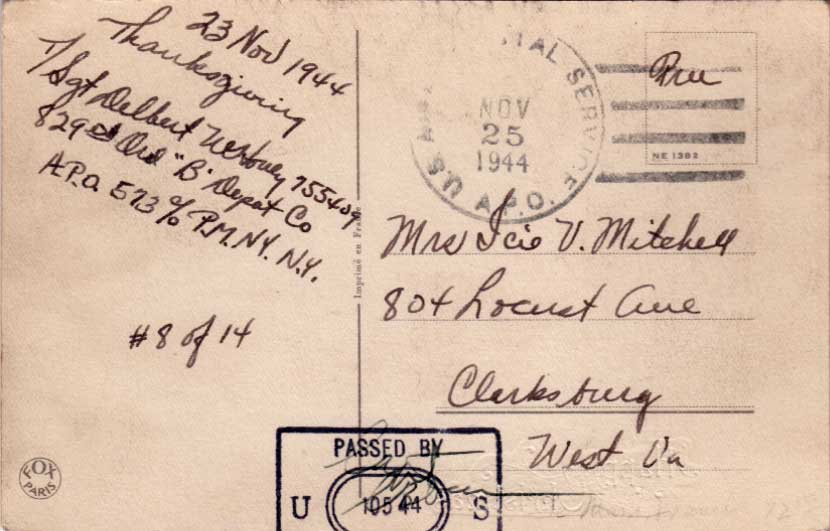 23 Nov 1944
Thanksgiving
T/Sgt Delbert
829 Ord "B" Depot Co
A.P.O. 573 c/o P.M. N.Y. N.Y.
#8 of 14
FOX
PARIS
Imprimé en France
U.S. A.P.O. SERVICE
NOV
25
1944
Free
NE 1382
Mrs Icie V. Mitchell
804 Locust Ave
Clarksburg
West Va
PASSED BY
U 10544 S